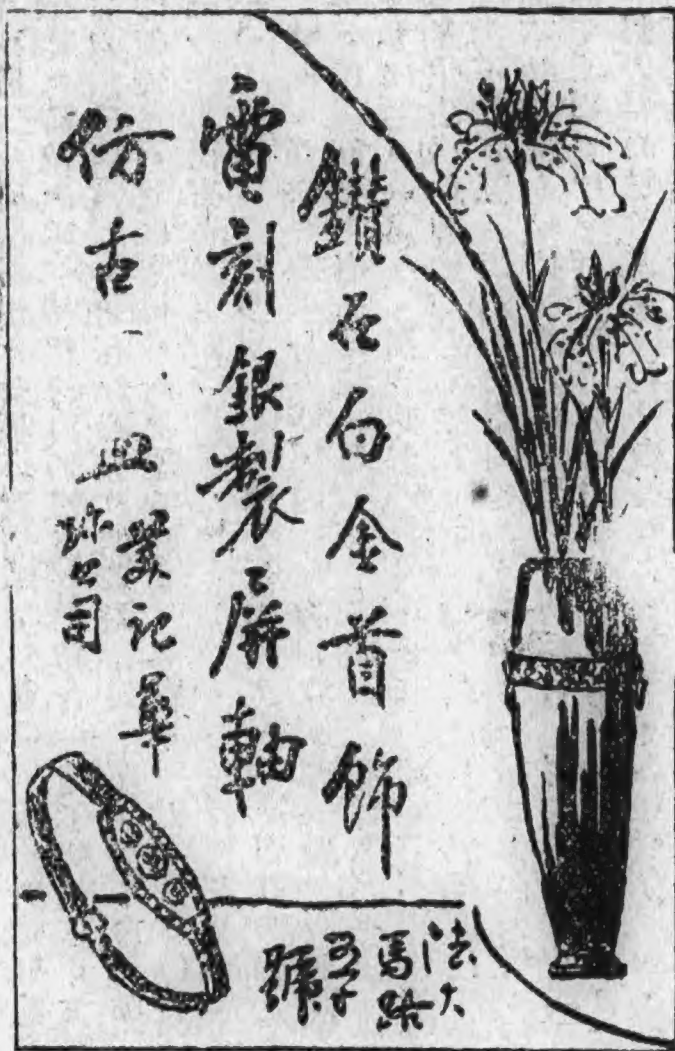 鑽石白金首飾
雷刻銀製屏軸
仿古 皿
記華
公司
法大
馬路
號